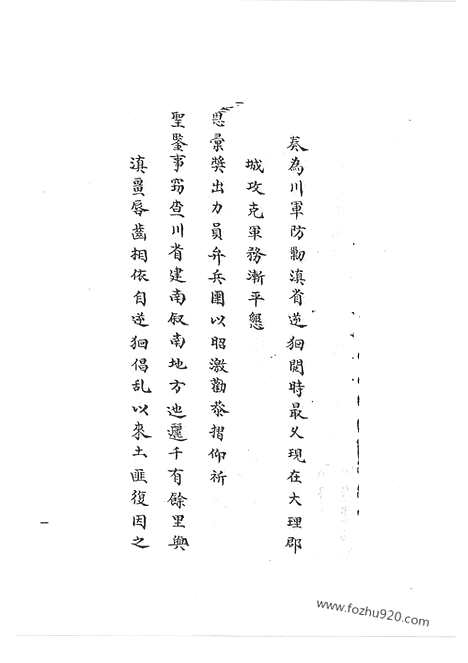 奏為川軍防勦滇省逆狪閱時最乆現在大理郡
城攻克軍務漸平懇
恩彙獎出力員弁兵團以昭激勸恭摺仰祈
聖鑒事竊查川省建南叙南地方迆邐千有餘里與
滇畺唇齒相依自逆狪倡乱以來土匪復因之
一
www.fozhu920.com